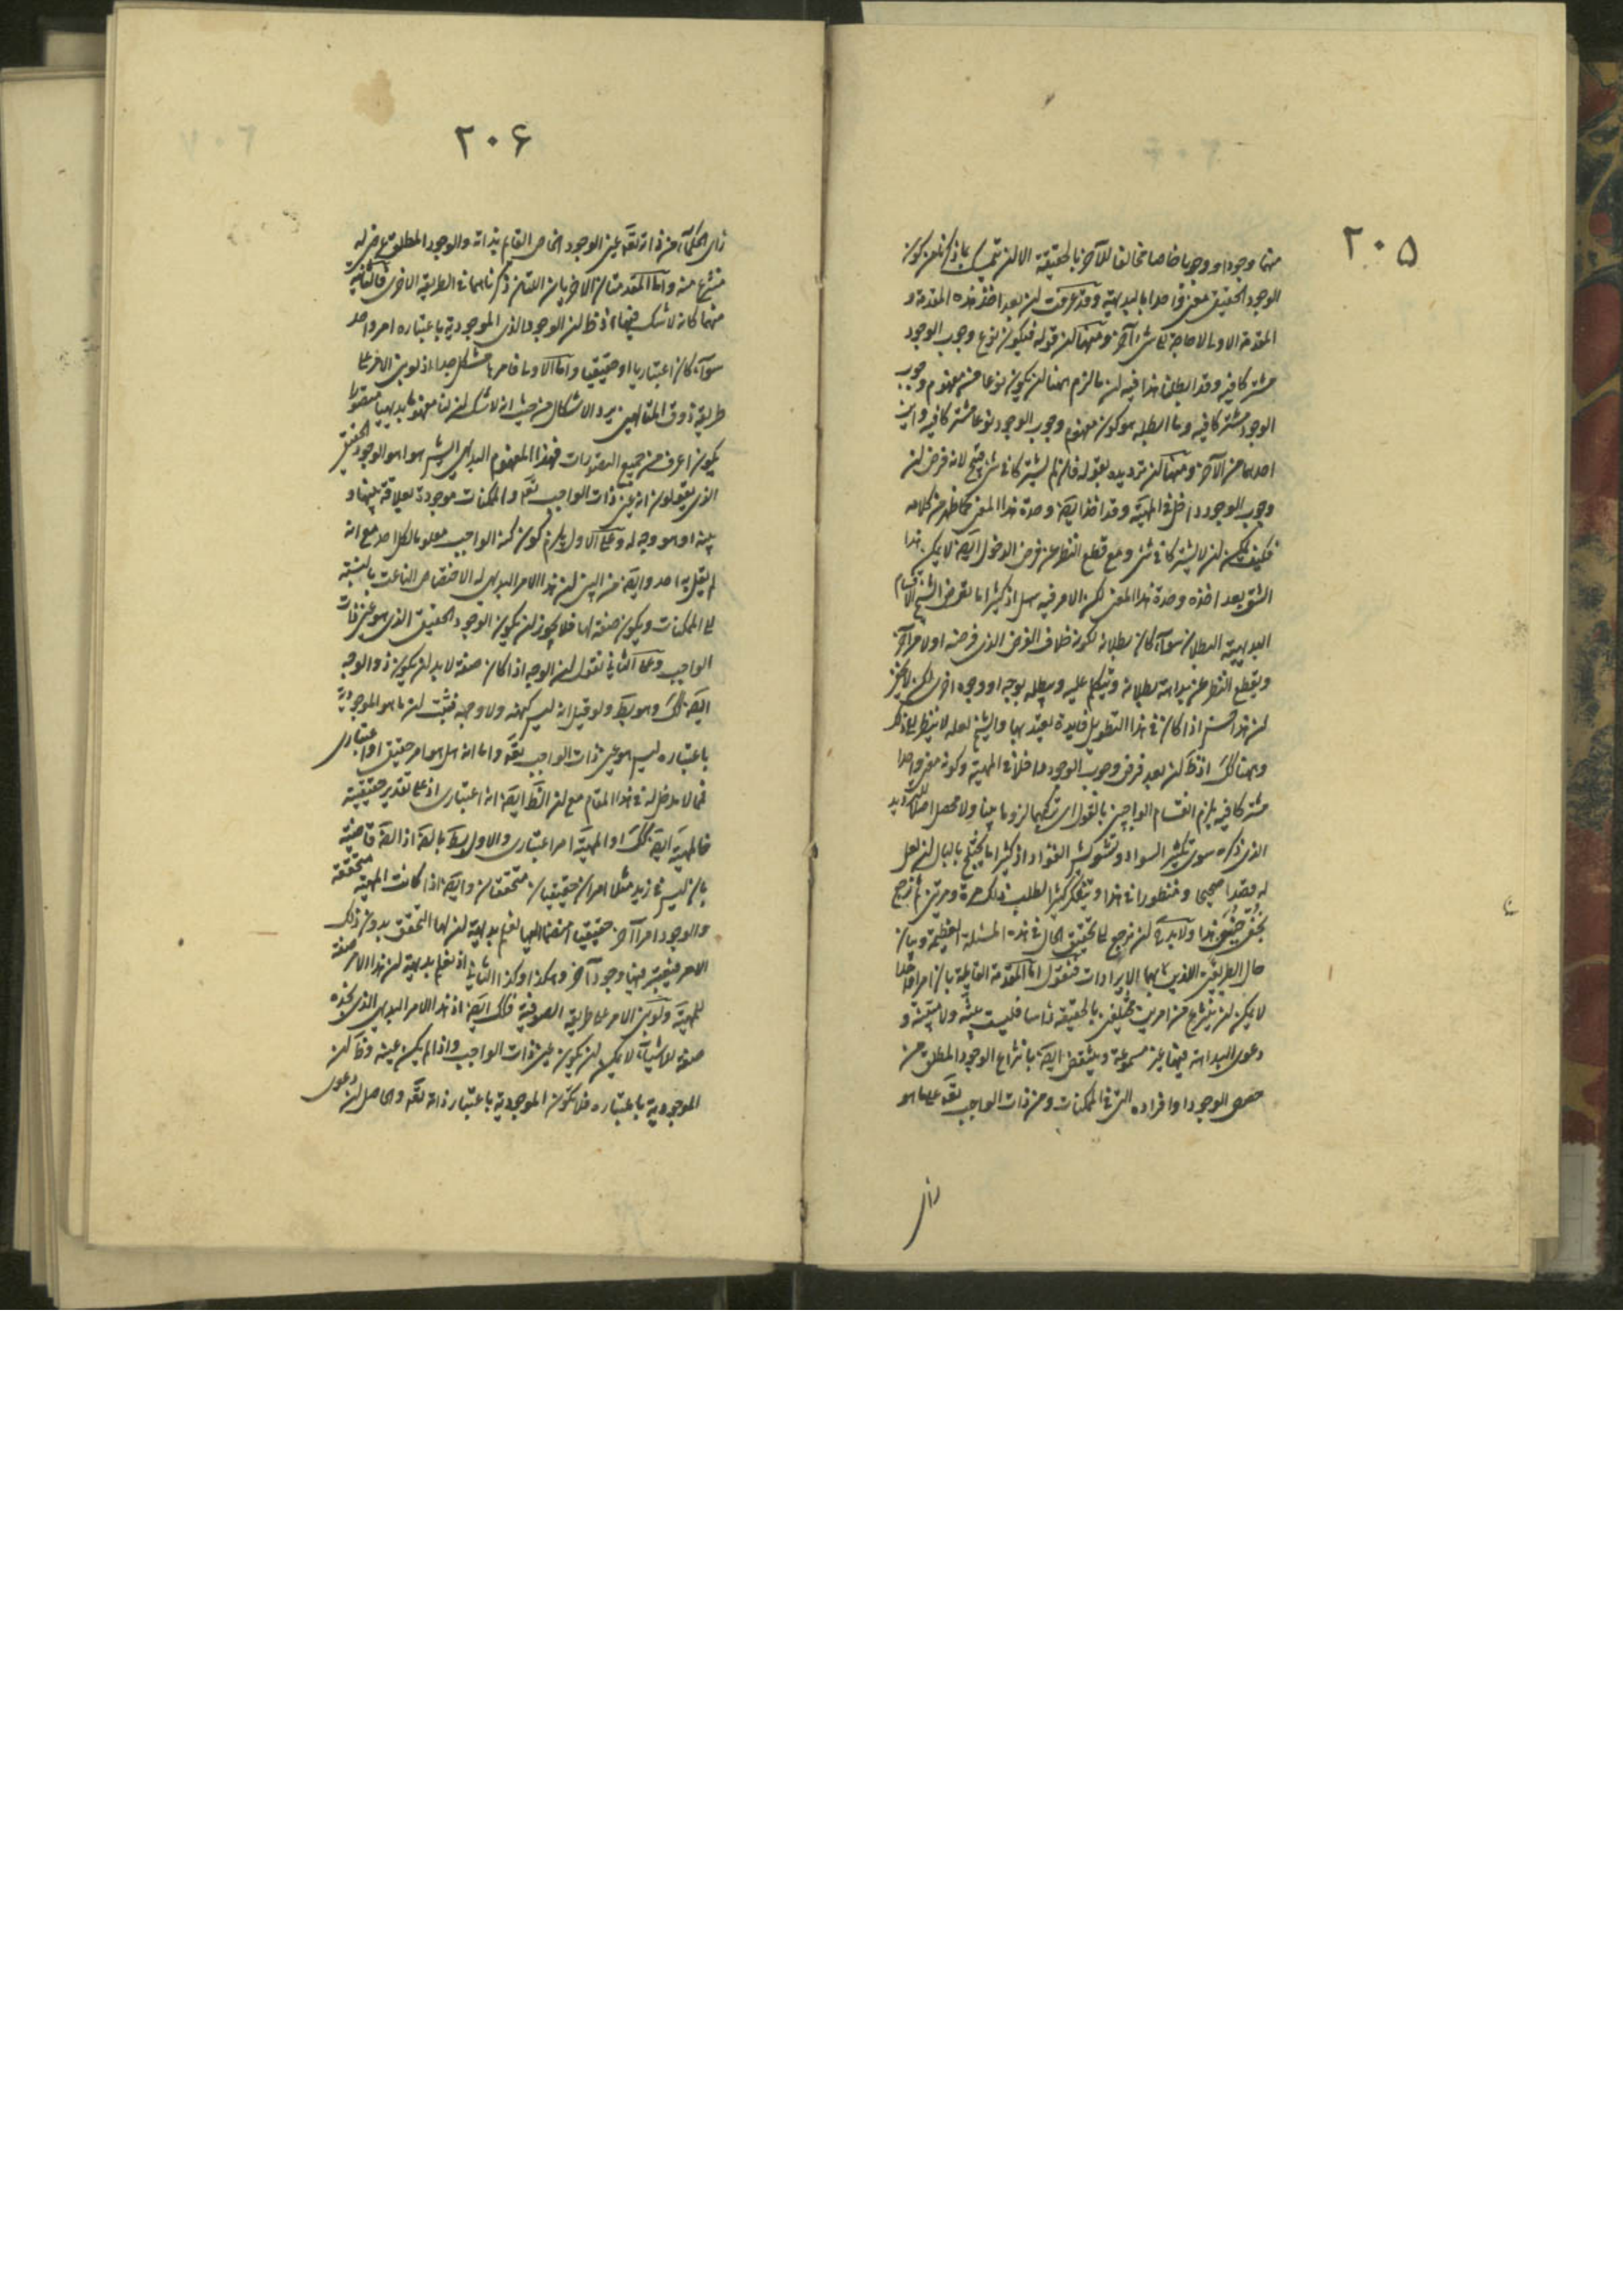 ٢٠۵
منهما وجودا و وجوبا خاصا مخالفا للآخر بالحقيقة الا ان يتمسك بما ذكرنا من كون
الوجود الحقيقى معنى واحدا بالبديهة وقد عرفت ان بعد اخذ هذه المقدمة و
المقدمة الاولى لا حاجة الى شئ آخر ومنها ان قوله فيكون نوع وجوب الوجود
مشتركا فيه وقد ابطلنا هذا فيه ان ما لزم هنا ان يكون نوعا من مفهوم وجوب
الوجود مشتركا فيه وما ابطله هو كون مفهوم وجوب الوجود نوعا مشتركا فيه واين
احدهما من الآخر ومنها ان ترديده بقوله فان لم يشتركا فى شئ قبيح لانه فرض ان
وجوب الوجود داخل فى المهية وقد اخذ ايضا وحدة هذا المعنى كما ظهر من كلامه
فكيف يمكن ان لا يشتركا فى شئ ومع قطع النظر عن فرض الدخول ايضا لا يمكن هذا
الشق بعد اخذه وحدة هذا المعنى لكن الامر فيه سهل اذ كثيرا ما يفرض الشيخ الاقسام
البديهية البطلان سواء كان بطلانه لكونه خلاف الفرض الذى فرضه اولا او امرا آخر
ويقطع النظر عن بداهة بطلانه ويتكلم عليه ويبطله بوجه او وجوه اخرى لكن لا يمكن
ان هذا حسن اذا كان فى هذا التطويل فايدة يعتد بها والشيخ لعله لا ينظر الى ذلك
وهنا كك اذ ظ ان بعد فرض وجوب الوجود داخلا فى المهية وكونه معنى واحدا
مشتركا فيه يلزم انقسام الواجبين بالقول اى تركبهما لزوما بينا ولا محصل اصلا للترديد
الذى ذكره سوى تكثير السواد وتشويش الفؤاد اذ كثيرا ما يختلج بالبال ان لعل
له مقصدا صحيحا ومنظورا فى هذا ويتفكر كثيرا لطلب ذلك مرة ومرتين ثم يرجع
بخفى حنين هذا ولا بد ان نرجع الى تحقيق الحال فى هذه المسئلة العظيمة وبيان
حال الطريقين اللذين بهما الايرادات فنقول اما المقدمة القايلة بان امرا واحدا
لا يمكن ان ينتزع من امرين مختلفين بالحقيقة تماما فليست بينة ولا مبينة و
دعوى البداهة فيها غير مسموعة وينتقض ايضا بانتزاع الوجود المطلق من
حصص الوجود او افراده التى فى الممكنات ومن ذات الواجب تعالى على ما هو
راى
٢٠۶
راى الحكماء من ذاته تعالى عين الوجود الخاص القايم بذاته والوجود المطلق عرضى له
منتزع منه واما المقدمتان الاخريان اللتان ذكرناهما فى الطريقة الاخرى فالثانية
منهما كانه لا شك فيها اذ ظ ان الوجود الذى الموجودية باعتباره امر واحد
سواء كان اعتباريا او حقيقيا واما الاولى فامرها مشكل جدا اذ لو بنى الامر على
طريقة ذوق المتالهين يرد الاشكال من حيث انه لا شك ان لنا مفهوما بديهيا متصورا
يكون اعرف من جميع التصورات فهذا المفهوم البديهى اليسير هو اما هو الوجود الحقيقى
الذى يقولون انه عين ذات الواجب تعالى والممكنات موجودة بعلاقة بينها و
بينه او هو وجه له وعلى الاول يلزم كون كنه الواجب معلوما لكل احد مع انه
لم يقل به احد وايضا من البين ان هذا الامر البديهى له الاختصاص الناعت بالنسبة
الى الممكنات ويكون صفة لها فلا يجوز ان يكون الوجود الحقيقى الذى هو عين ذات
الواجب وعلى الثانى نقول ان الوجه اذا كان صفة لا بد ان يكون ذو الوجه
ايضا كك وهو بط ولو قيل انه ليس كنهه ولا وجهه فثبت ان ما هو الموجودية
باعتباره ليس هو عين ذات الواجب تعالى واما انه هل هو امر حقيقى او اعتبارى
فما لا مدخل له فى هذا المقام مع ان الظ ايضا انه اعتبارى اذ على تقدير حقيقيته
فالمهية ايضا كك او المهية امر اعتبارى والاول بط بالضرورة اذ الضرورة قاضية
بان ليس فى زيد مثلا امران حقيقيان متحققان وايضا اذا كانت المهية متحققة
والوجود امرا آخر حقيقيا منضما اليها نعلم بديهة ان لها التحقق بدون ذلك
الامر فيعتبر فيها وجود آخر وهكذا وكذا الثانى اذ نعلم بديهة ان هذا الامر صفة
للمهية ولو بنى الامر على طريقة الصوفية فكك ايضا اذ هذا الامر البديهى الذى نجده
صفة للاشياء لا يمكن ان يكون عين ذات الواجب واذا لم يكن عينه وظ ان
الموجودية باعتباره فلا تكون الموجودية باعتبار ذاته تعالى والحاصل ان دعوى